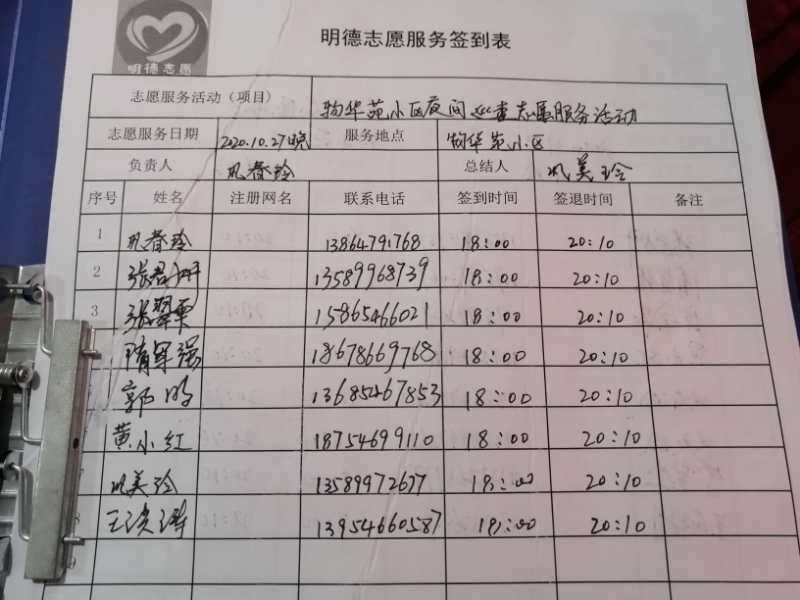 明德志愿服务签到表
明德志愿
志愿服务活动（项目） 物华苑小区夜间巡查志愿服务活动
志愿服务日期 2020.10.27晚 服务地点 物华苑小区
负责人 巩春玲 总结人 巩美玲
序号 姓名 注册网名 联系电话 签到时间 签退时间 备注
1 巩春玲 13864791768 18:00 20:10
2 张君 13589968739 18:00 20:10
3 张翠栗 15865466021 18:00 20:10
隋军强 18678669768 18:00 20:10
郭鸣 13685467853 18:00 20:10
黄小红 18754699110 18:00 20:10
巩美玲 13589972677 18:00 20:10
王洪涛 13954660587 18:00 20:10